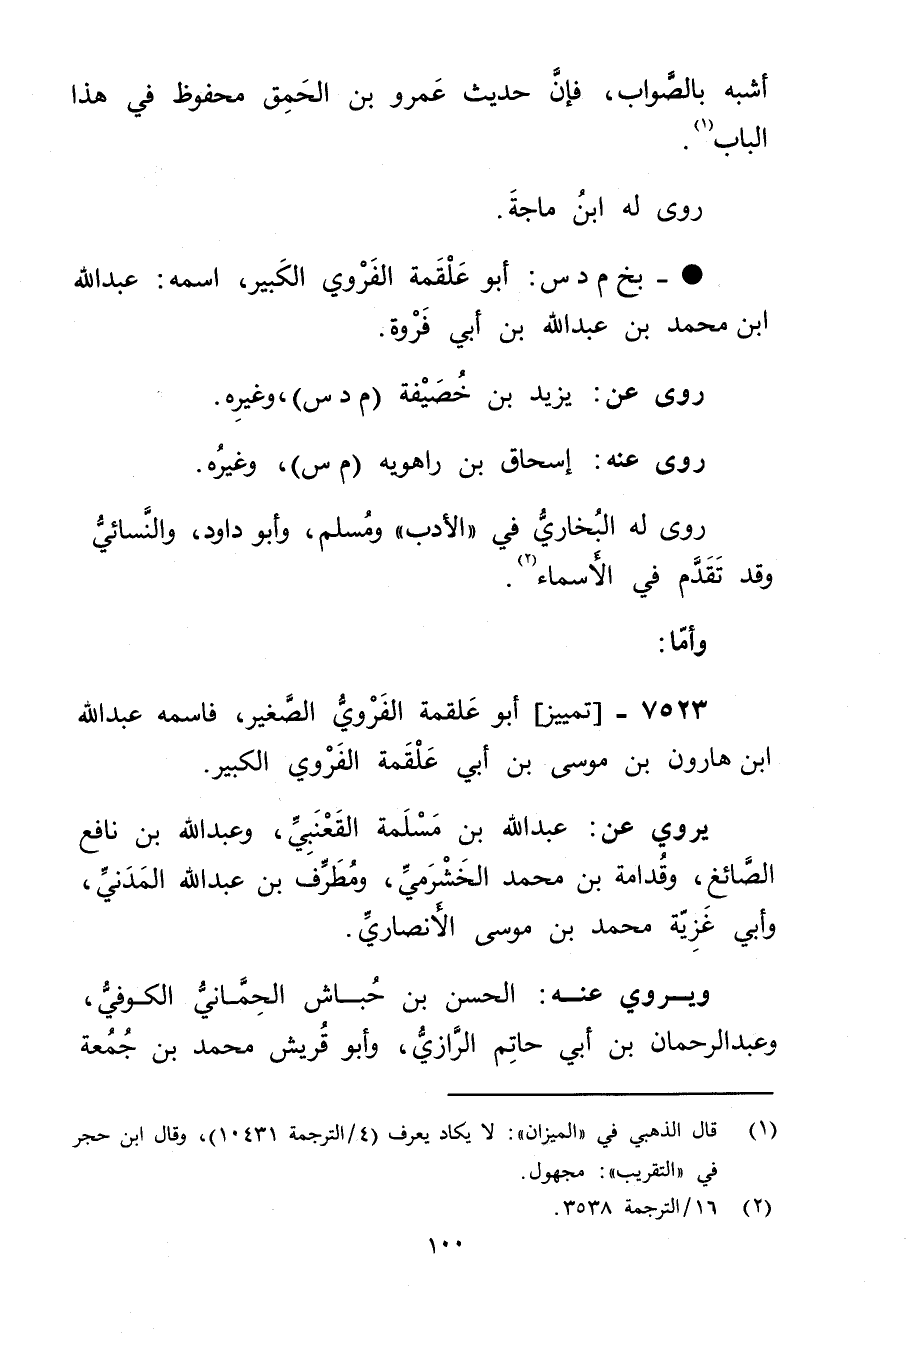 أشبه بالصَّواب، فإنَّ حديث عَمرو بن الحَمِق محفوظ في هذا
الباب(١).
روى له ابنُ ماجةَ.
● ـ بخ م د س: أبو عَلْقَمة الفَرْوي الكَبير، اسمه: عبدالله
ابن محمد بن عبدالله بن أبي فَرْوة.
روى عن: يزيد بن خُصَيْفة (م د س)، وغيرِه.
روى عنه: إسحاق بن راهويه (م س)، وغيرُه.
روى له البُخاريُّ في «الأدب» ومُسلم، وأبو داود، والنَّسائيُّ
وقد تَقَدَّم في الأَسماء(٢).
وأمّا:
٧٥٢٣ ـ [تمييز] أبو عَلقمة الفَرْويُّ الصَّغير، فاسمه عبدالله
ابن هارون بن موسى بن أبي عَلْقَمة الفَرْوي الكبير.
يروي عن: عبدالله بن مَسْلَمة القَعْنَبِيِّ، وعبدالله بن نافع
الصَّائغ، وقُدامة بن محمد الخَشْرَميِّ، ومُطَرِّف بن عبدالله المَدَنيِّ،
وأبي غَزِيّة محمد بن موسى الأَنصاريِّ.
ويروي عنه: الحسن بن حُباش الحِمَّانيُّ الكوفيُّ،
وعبدالرحمان بن أبي حاتِم الرَّازيُّ، وأبو قُريش محمد بن جُمُعة
(١) قال الذهبي في «الميزان»: لا يكاد يعرف (٤/الترجمة ١٠٤٣١)، وقال ابن حجر
في «التقريب»: مجهول.
(٢) ١٦/الترجمة ٣٥٣٨.
١٠٠